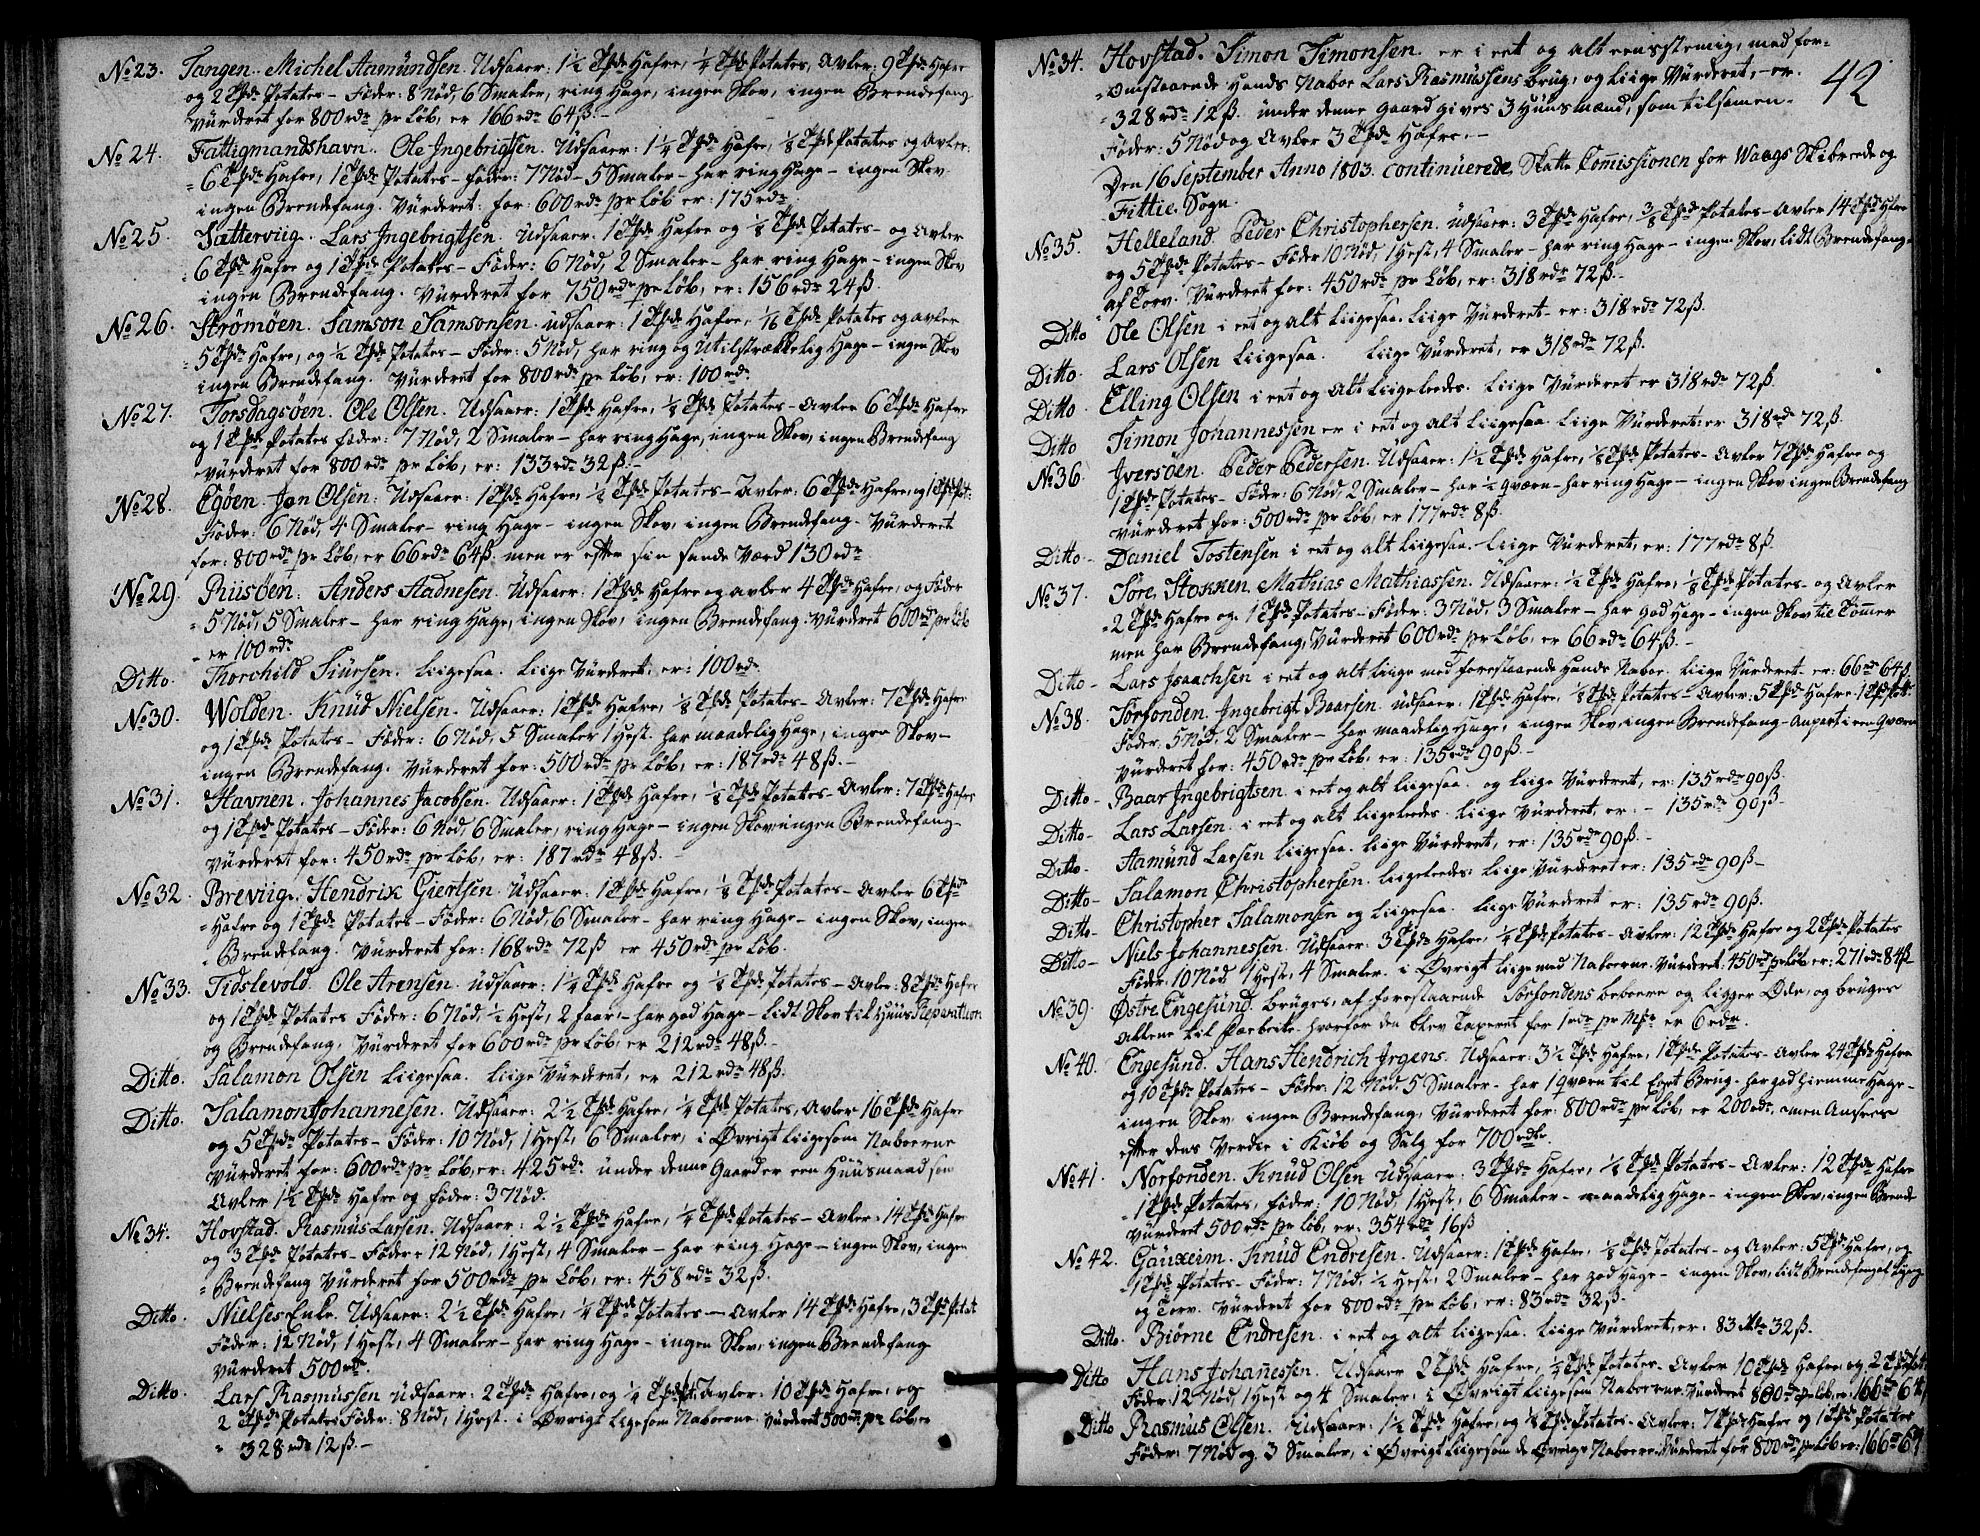 No 23. Tangen. Michel Aamundsen. Udsaaer: 1½ Tde Hafre, ¼ Tde Potates, Avler: 9 Tde Hafre
og 2 Tde Potates – Føder: 8 Nød, 6 Smaler, ring Hage, ingen Skov, ingen Brendefang
Vurderet for 800 rdr pr Løb, er 166 rdr 64 ß. –
No 24. Fattigmandshavn. Ole Ingebrigtsen. Udsaaer: 1¼ Tde Hafre, ⅛ Tde Potates og Avler:
6 Tde Hafre, 1 Tde Potates – Føder: 7 Nød – 5 Smaler – har ring Hage – ingen Skov
ingen Brendefang. Vurderet: for: 600 rdr pr Løb er: 175 rdr.
No 25. Lars Ingebrigtsen. Udsaaer: 1 Tde Hafre og ⅛ Tde Potates – og Avler
6 Tde Hafre og 1 Tde Potates – Føder: 6 Nød, 2 Smaler – har ring Hage – ingen Skov
ingen Brendefang. Vurderet for 750 rdr pr Løb, er: 156 rdr 24 ß.
No 26. Strømøen. Samson Samsonsen. Udsaaer: 1 Tde Hafre, 1/16 Tde Potates og avler
5 Tde Hafre, og ½ Tde Potates – Føder: 5 Nød, har ring og Utilstrækkelig Hage – ingen Skov
ingen Brendefang. Vurderet for 800 rdr pr Løb, er: 100 rdr.
No 27. Torsdagsøen. Ole Olsen. Udsaaer: 1 Tde Hafre, ⅛ Tde Potates – Avler 6 Tde Hafre
og 1 Tde Potates føder: 7 Nød, 2 Smaler – har ring Hage, ingen Skov, ingen Brendefang
Vurderet for 800 rdr pr Løb, er: 133 rdr 32 ß. –
No 28. Egøen. Jan Olsen: Udsaaer: 1 Tde Hafre, ⅛ Tde Potates – Avler: 6 Tde Hafre, og 1 Tde Pot:
Føder: 6 Nød, 4 Smaler – ring Hage – ingen Skov, ingen Brendefang – Vurderet
for: 800 rdr pr Løb, er 66 rdr 64 ß. men er efter sin sande Værd 130 rdr.
No 29. Riisøen: Anders Aadnesen. Udsaaer: 1 Tde Hafre og avler 4 Tde Hafre, og Føder
5 Nød, 5 Smaler – har ring Hage, ingen Skov, ingen Brendefang. Vurderet 600 rdr pr Løb
er 100 rdr.
Ditto. Thorchild Siursen. Liigesaa. Liige Vurderet, er: 100 rdr.
No 30. Wolden. Knud Nielsen. Udsaaer: 1 Tde Hafre, ⅛ Tde Potates – Avler: 7 Tde Hafre
og 1 Tde Potates – Føder: 6 Nød, 5 Smaler 1 Hest. har maadelig Hage, ingen Skov –
ingen Brendefang. Vurderet for: 500 rdr pr Løb, er: 187 rdr 48 ß. –
No 31. Havnen. Johannes Jacobsen. Udsaaer: 1 Tde Hafre, ⅛ Tde Potates – Avler: 7 Tde Hafre
og 1 Tde Potates – Føder: 6 Nød, 6 Smaler, ring Hage – ingen Skov, ingen Brendefang –
Vurderet for: 450 rdr pr Løb, er: 187 rdr 48 ß. –
No 32. Breviig. Hendrik Giertsen. Udsaaer: 1 Tde Hafre, ⅛ Tde Potates – Avler 6 Tde
Hafre og 1 Tde Potates – Føder: 6 Nød, 6 Smaler – har ring Hage – ingen Skov, ingen
Brendefang. Vurderet for: 168 rdr 72 ß er 450 rdr pr Løb.
No 33. Tidslevold. Ole Arensen. Udsaaer: 1¼ Tde Hafre og ⅛ Tde Potates – Avler: 8 Tde Hafre
og 1 Tde Potates Føder: 6 Nød, ½ Hest, 2 faar, – har god Hage – lidt Skov til Huus Reparation
og Brendefang, Vurderet for 600 rdr pr Løb, er 212 rdr 48 ß. –
Ditto. Salamon Olsen Liigesaa. Liige Vurderet, er 212 rdr 48 ß.
Ditto. Salamon Johannesen. Udsaaer: 2½ Tde Hafre, ¼ Tde Potates, Avler 16 Tde Hafre
og 5 Tde Potates – Føder: 10 Nød, 1 Hest, 6 Smaler, i Øvrigt Liigesom Naboerne
Vurderet for: 600 rdr pr Løb, er: 425 rdr. under denne Gaard er een Huusmand som
Avler 1½ Tde Hafre og føder: 3 Nød.
No 34. Hovstad. Rasmus Larsen. Udsaaer: 2½ Tde Hafre, ¼ Tde Potates – Avler: 14 Tde Hafre
og 3 Tde Potates – Føder: 12 Nød, 1 Hest, 4 Smaler – har ring Hage – ingen Skov, ingen
Brendefang Vurderet for 500 rdr pr Løb, er: 458 rdr 32 ß.
Ditto. Nielses Enke. Udsaaer: 2½ Tde Hafre, ¼ Tde Potates – Avler 14 Tde Hafre, 3 Tde Potat
Føder: 12 Nød, 1 Hest, 4 Smaler – har ring Hage – ingen Skov, ingen Brendefang
Vurderet 500 rdr.
Ditto. Lars Rasmussen Udsaaer: 2 Tde Hafre, og ¼ Tde Pot: Avler: 10 Tde Hafre, og
2 Tde Potates Føder: 8 Nød, 1 Hest. i Øvrigt Ligesom Naboerne. Vurderet 500 rdr pr Løb er
328 rdr 12 ß. –
No 34. Hovstad. Simon Simonsen. er i eet og alt eensstemig, med for-
omstaaende Hands Nabor Lars Rasmussens brug, og liige Vurderet, – er. 42
328 rdr 12 ß. under denne Gaard gives 3 Huusmænd, som tilsamen
Føder: 5 Nød og Avler 3 Tde Hafre. –
Den 16 September Anno 1803. continuerede Skatte Comissionen for Waags Skibrede og
Fittie Sogn.
No 35. Helleland. Peder Christophersen. Udsaaer: 3 Tde Hafre, ⅜ Tde Potates – Avler 14 Tde Hfre
og 5 Tde Potates – Føder 10 Nød, 1 Hest, 4 Smaler – har ring Hage – ingen Skov, lidt Brendefang
af Torv. Vurderet for: 450 rdr pr Løb, er: 318 rdr 72 ß. –
Ditto Ole Olsen i eet og alt Liigesaa. Liige Vurderet – er: 318 rdr 72 ß.
Ditto. Lars Olsen Liigesaa. Liige Vurderet, er 318 rdr 72 ß.
Ditto. Elling Olsen i eet og alt Liigeleedes. Liige Vurderet er 318 rdr 72 ß.
Ditto Simon Johannessen er i eet og alt Liigesaa. Liige Vurderet: er 318 rdr 72 ß.
No 36. Iversøen. Peder Pedersen. Udsaaer: 1½ Tde Hafre, ⅛ Tde Potates – Avler 7 Tde Hafre og
1 Tde Potates – Føder: 6 Nød, 2 Smaler – har ½ qværn – har ring Hage – ingen Skov ingen Brendefang
Vurderet for: 500 rdr pr Løb, er 177 rdr 8 ß.
Ditto – Daniel Tostensen i eet og alt Liigesaa. Liige Vurderet, er: 177 rdr 8 ß.
No 37. Søre, Stokken, Mathias Mathiassen. Udsaaer: ½ Tde Hafre, ⅛ Tde Potates – og Avler
2 Tde Hafre og 1 Tde Potates – Føder: 3 Nød, 3 Smaler – har god Hage – ingen Skov til Tømer
men har Brendefang, Vurderet 600 rdr pr Løb, er 66 rdr 64 ß. –
Ditto – Lars Isaachsen i eet og alt Liige med forestaaende Hands Nabor. Liige Vurderet – er: 66 rdr 64 ß
No 38. Sørfonden. Ingebrigt Baarsen. Udsaaer: 1 Tde Hafre, ⅛ Tde Potates – Avler: 5 Tde Hafre 1 Tde Pott:
Føder. 5 Nød, 2 Smaler – har maadelig Hage, ingen Skov, ingen Brendefang – Anpart i een Qværn
Vurderet for: 450 rdr pr Løb, er: 135 rdr 90 ß. –
Ditto – Baar Ingebrigtsen. i eet og alt Liigesaa. og Liige Vurderet, er: 135 rdr 90 ß.
Ditto – Lars Larsen. i eet og alt Liigeleedes. Liige Vurderet, er: – 135 rdr 90 ß. –
Ditto. Aamund Larsen Liigesaa. Liige Vurderet, er: 135 rdr 90 ß. –
Ditto – Salamon Christophersen. Liigeleedes. Liige Vurderet er: 135 rdr 90 ß –
Ditto – Christopher Salamonsen og Liigesaa. Liige Vurderet er: 135 rdr 90 ß.
Ditto – Niels Johannessen. Udsaaer: 3 Tde Hafre, ¼ Tde Potates – Avler: 12 Tde Hafre og 2 Tde Potates
Føder: 10 Nød 1 Hest, 4 Smaler. i Øvrigt Liige med Naboerne. Vurderet: 450 rdr pr Løb er: 271 rdr 84 ß
No 39. Østre Engesund. bruges, af forestaaende Sørfondens beboere og ligger Øde, og bruges
allene til hvorfor den blev Taxeret for 1 rdr pr er 6 rdr.
No 40. Engesund. Hans Hendrich Irgens. Udsaaer: 3½ Tde Hafre, 1 Tde Potates – Avler 24 Tde Hafre
og 10 Tde Potates – Føder: 12 Nød 5 Smaler – har 1 qværn til Eget Brug – har god Hiemme Hage –
ingen Skov ingen Brendefang, Vurderet for: 800 rdr pr Løb, er 200 rdr, men Ansees
efter dens Verdie i Kiøb og Salg for 700 rdr.
No 41. Norfonden. Knud Olsen Udsaaer: 3 Tde Hafre, ⅛ Tde Potates – Avler: 12 Tde Hafre
1 Tde Potates, føder: 10 Nød, 1 Hest, 6 Smaler – maadelig Hage – ingen Skov, ingen Brende
Vurderet 500 rdr pr Løb, er: 354 rdr 16 ß
No 42. Gauxeim. Knud Endresen. Udsaaer: 1 Tde Hafre, ⅛ Tde Potates – og Avler: 5 Tde Hafre, og
1 Tde Potates – Føder: 7 Nød ½ Hest, 2 Smaler – har god Hage – ingen Skov, lidt Brendefang af Liung
og Torv. Vurderet for 800 rdr pr Løb, er: 83 rdr 32 ß.
Ditto. Biørne Endresen. i eet og alt Liigesaa. Liige Vurderet, er: 83 rdr 32 ß.
Ditto Hans Johannessen. Udsaaer 2 Tde Hafre, ¼ Tde Potates – Avler 10 Tde Hafre, og 2 Tde Pot:
Føder 12 Nød, 1 Hest og 4 Smaler, i Øvrigt Liigesom Naboerne. Vurderet 800 rdr pr Løb, er: 166 rdr 64
Ditto Rasmus Olsen. Udsaaer: 1½ Tde Hafre, og ⅛ Tde Potates – Avler: 7 Tde Hafre og 1 Tde Potates
Føder: 7 Nød og 3 Smaler, i Øvrigt Liigesom de Øvrige Naboer. Vurderet for 800 rdr pr Løb er: 166 rdr 64